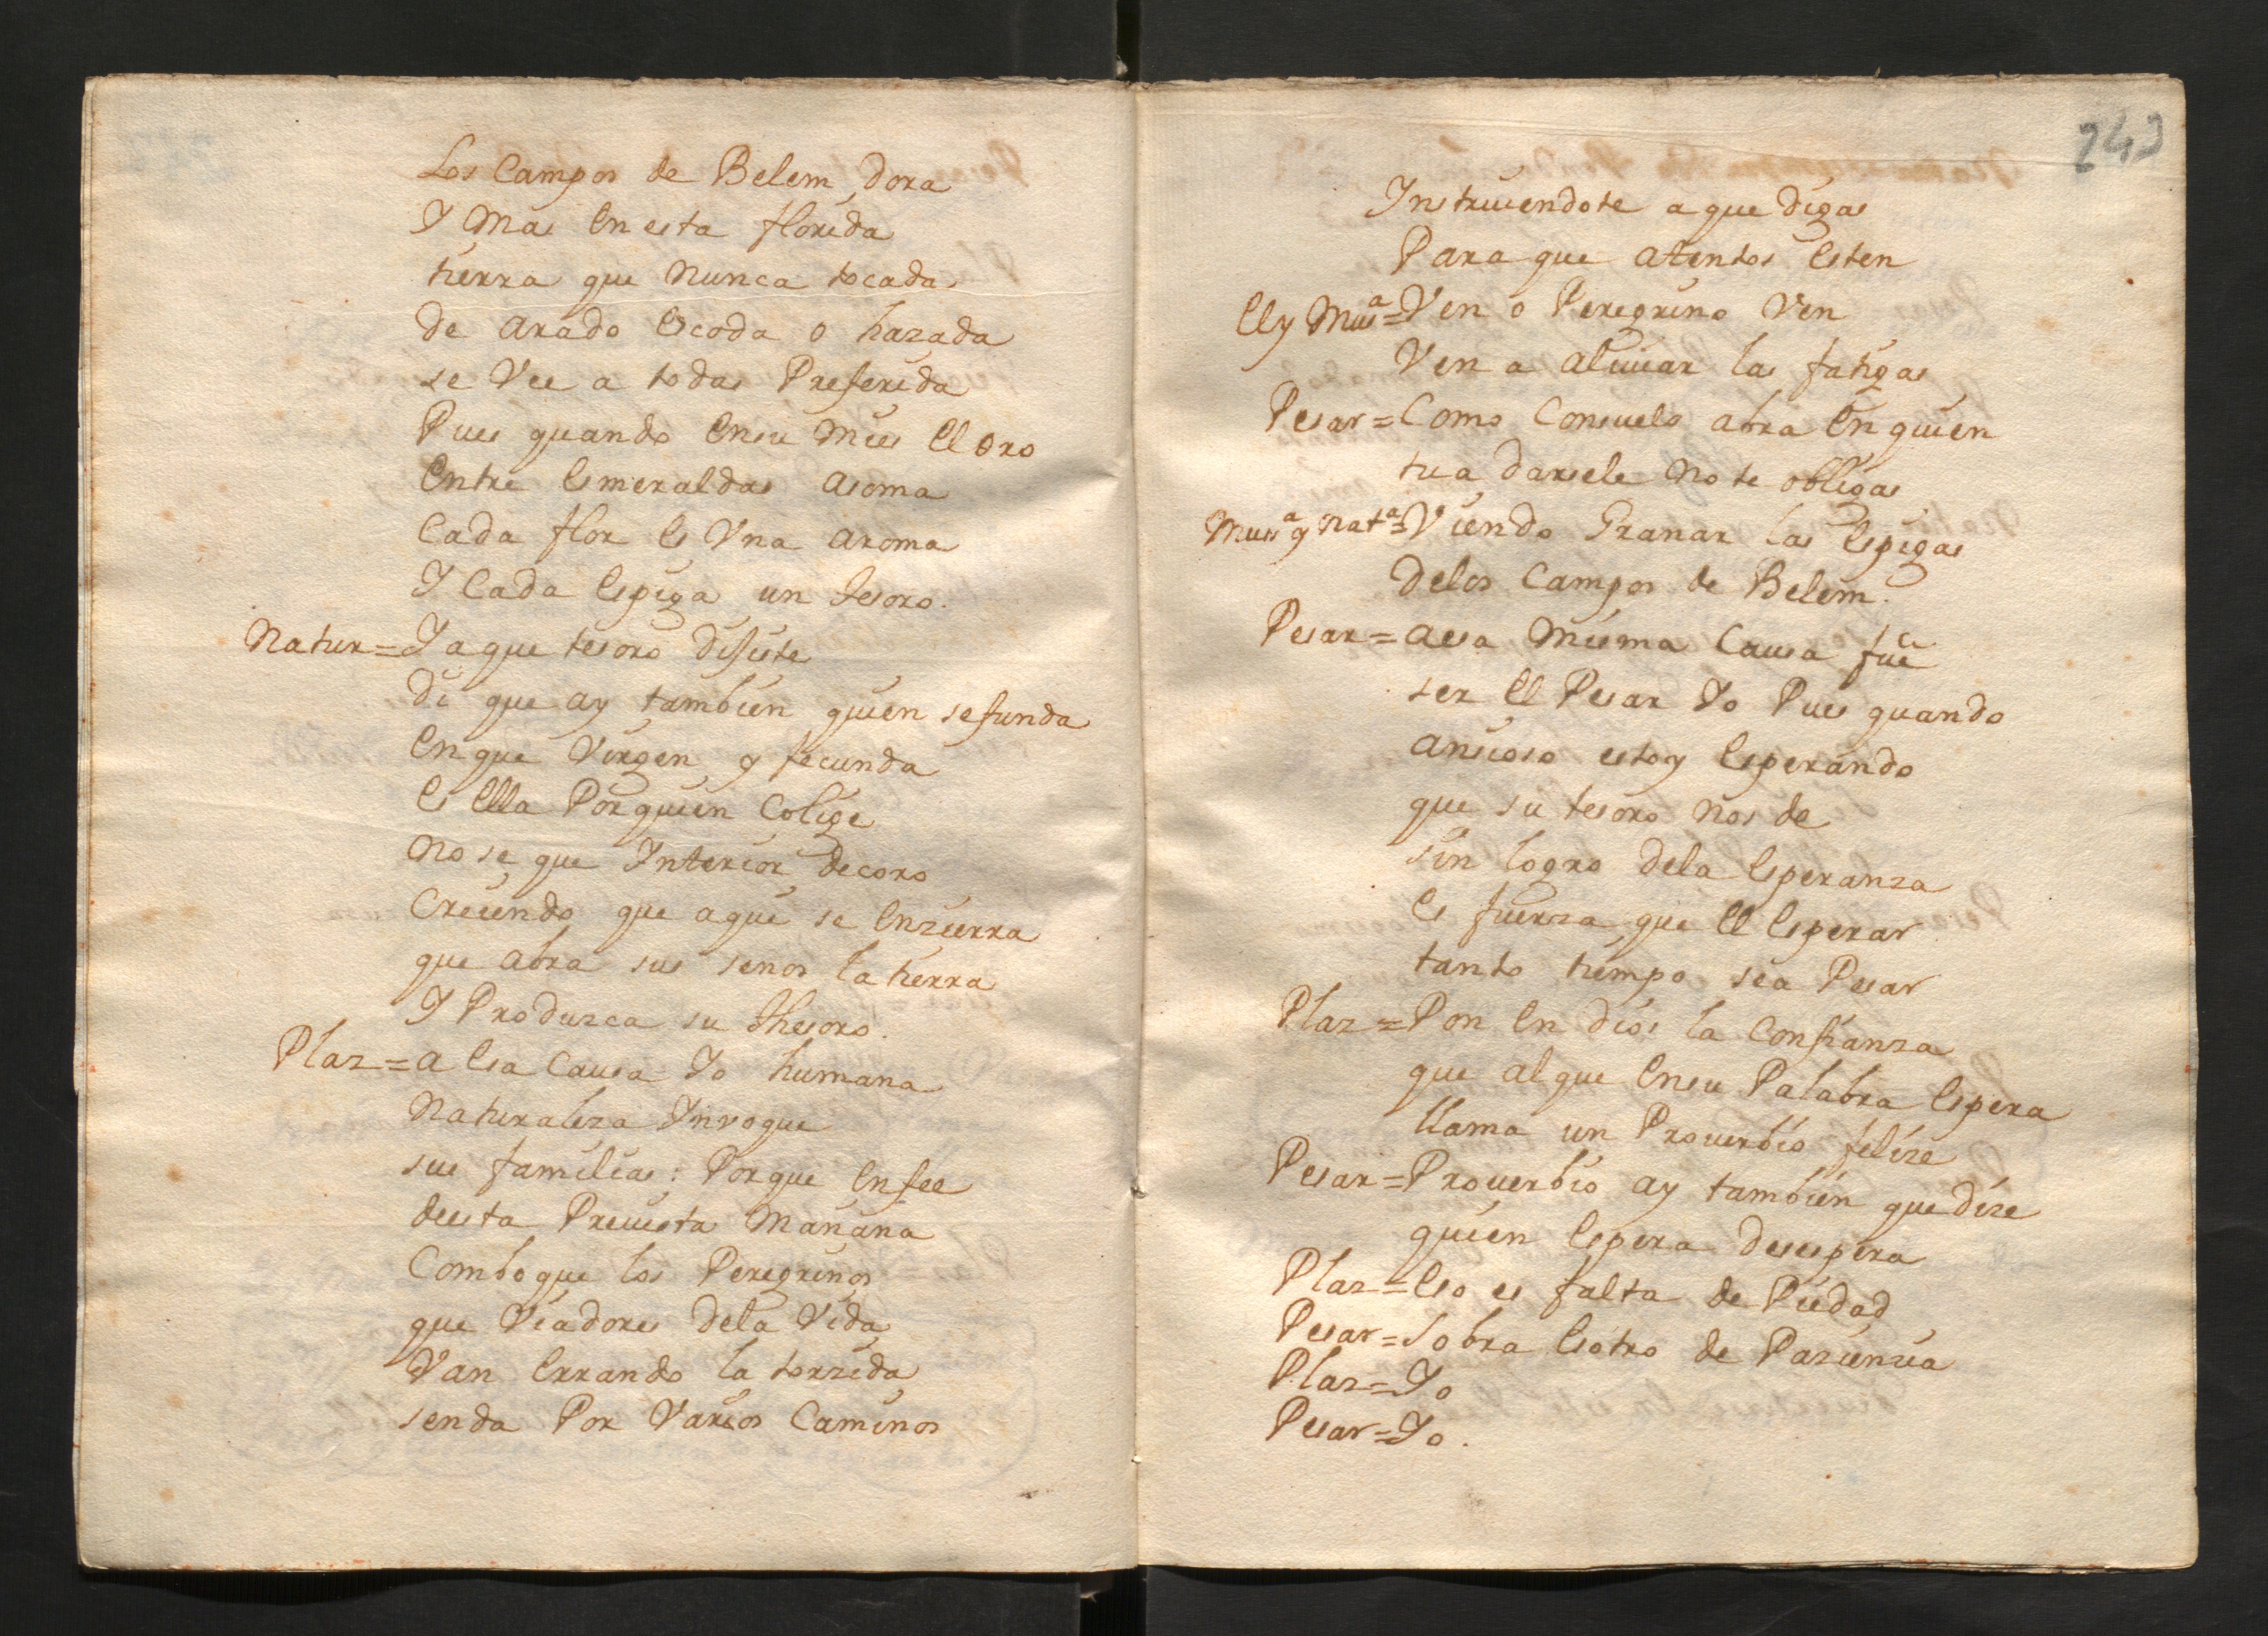 Los Campos de Belem dora
Y Mas En esta florida
tierra que Nunca tocada
de arado Escoda o hazada
se Vee a todas Preferida
Pues quando Ensu Mies El Oro
Entre Esmeraldas asoma
Cada flor Es Vna aroma
Y Cada Espiga un tesoro.
Natur= Ya que tesoro dijiste
di que ay tambien quien se funda
En que Virgen y fecunda
Es Ella Por quien Colige
No se que Interior decoro
Creiendo que aqui se Enzierra
que abra sus senos la tierra
Y Produzca su thesoro.
Plaz= a Esa Causa Yo humana
Naturaleza Invoque
sus familias: Porque En fee
desta Preuista Mañana
Comboque los Peregrinos
que Viadores dela Vida
Van Errando la torzida
senda Por Varios Caminos
243
Instruiendote a que digas
Para que atentos Esten
El y Musª= Ven o Peregrino Ven
Ven a aliuiar las fatigas
Pesar= Como Consuelo abra En quien
tu a darsele No te obligas
Musª y Natª= Viendo Granar las Espigas
delos Campos de Belem.
Pesar= a esa Misma Causa fue
ser El Pesar Yo Pues quando
ansioso estoy Esperando
que su tesoro Nos de
sin logro dela Esperanza
Es fuerza que El Esperar
tanto tiempo sea Pesar
Plaz= Pon En dios la Confianza
que al que Ensu Palabra Espera
llama un Prouerbio felize
Pesar= Prouerbio ay tambien que dize
quien Espera desespera
Plaz= Eso es falta de Piedad
Pesar= sobra Esotro de Pazienzia
Plaz= Yo
Pesar= Yo.